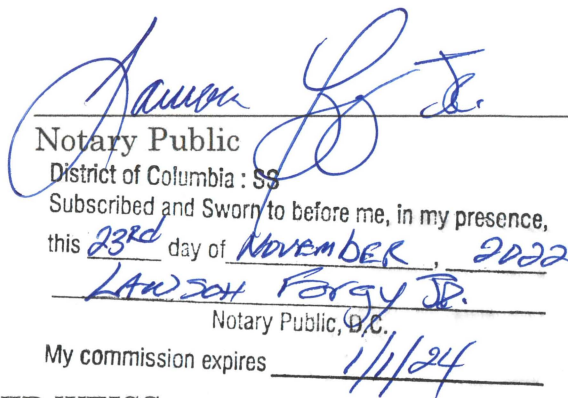 Lawson Jr.
Notary Public
District of Columbia : SS
Subscribed and Sworn to before me, in my presence,
this 23rd day of NOVEMBER , 2022
LAWSON Forgy JR.
Notary Public, D.C.
My commission expires 1/1/24